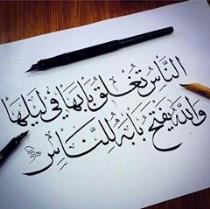 النَّاسُ تُغْلِقُ بَابَهَا فِي لَيْلِهَا
وَاللَّهُ يَفْتَحُ بَابَهُ لِلنَّاسِ